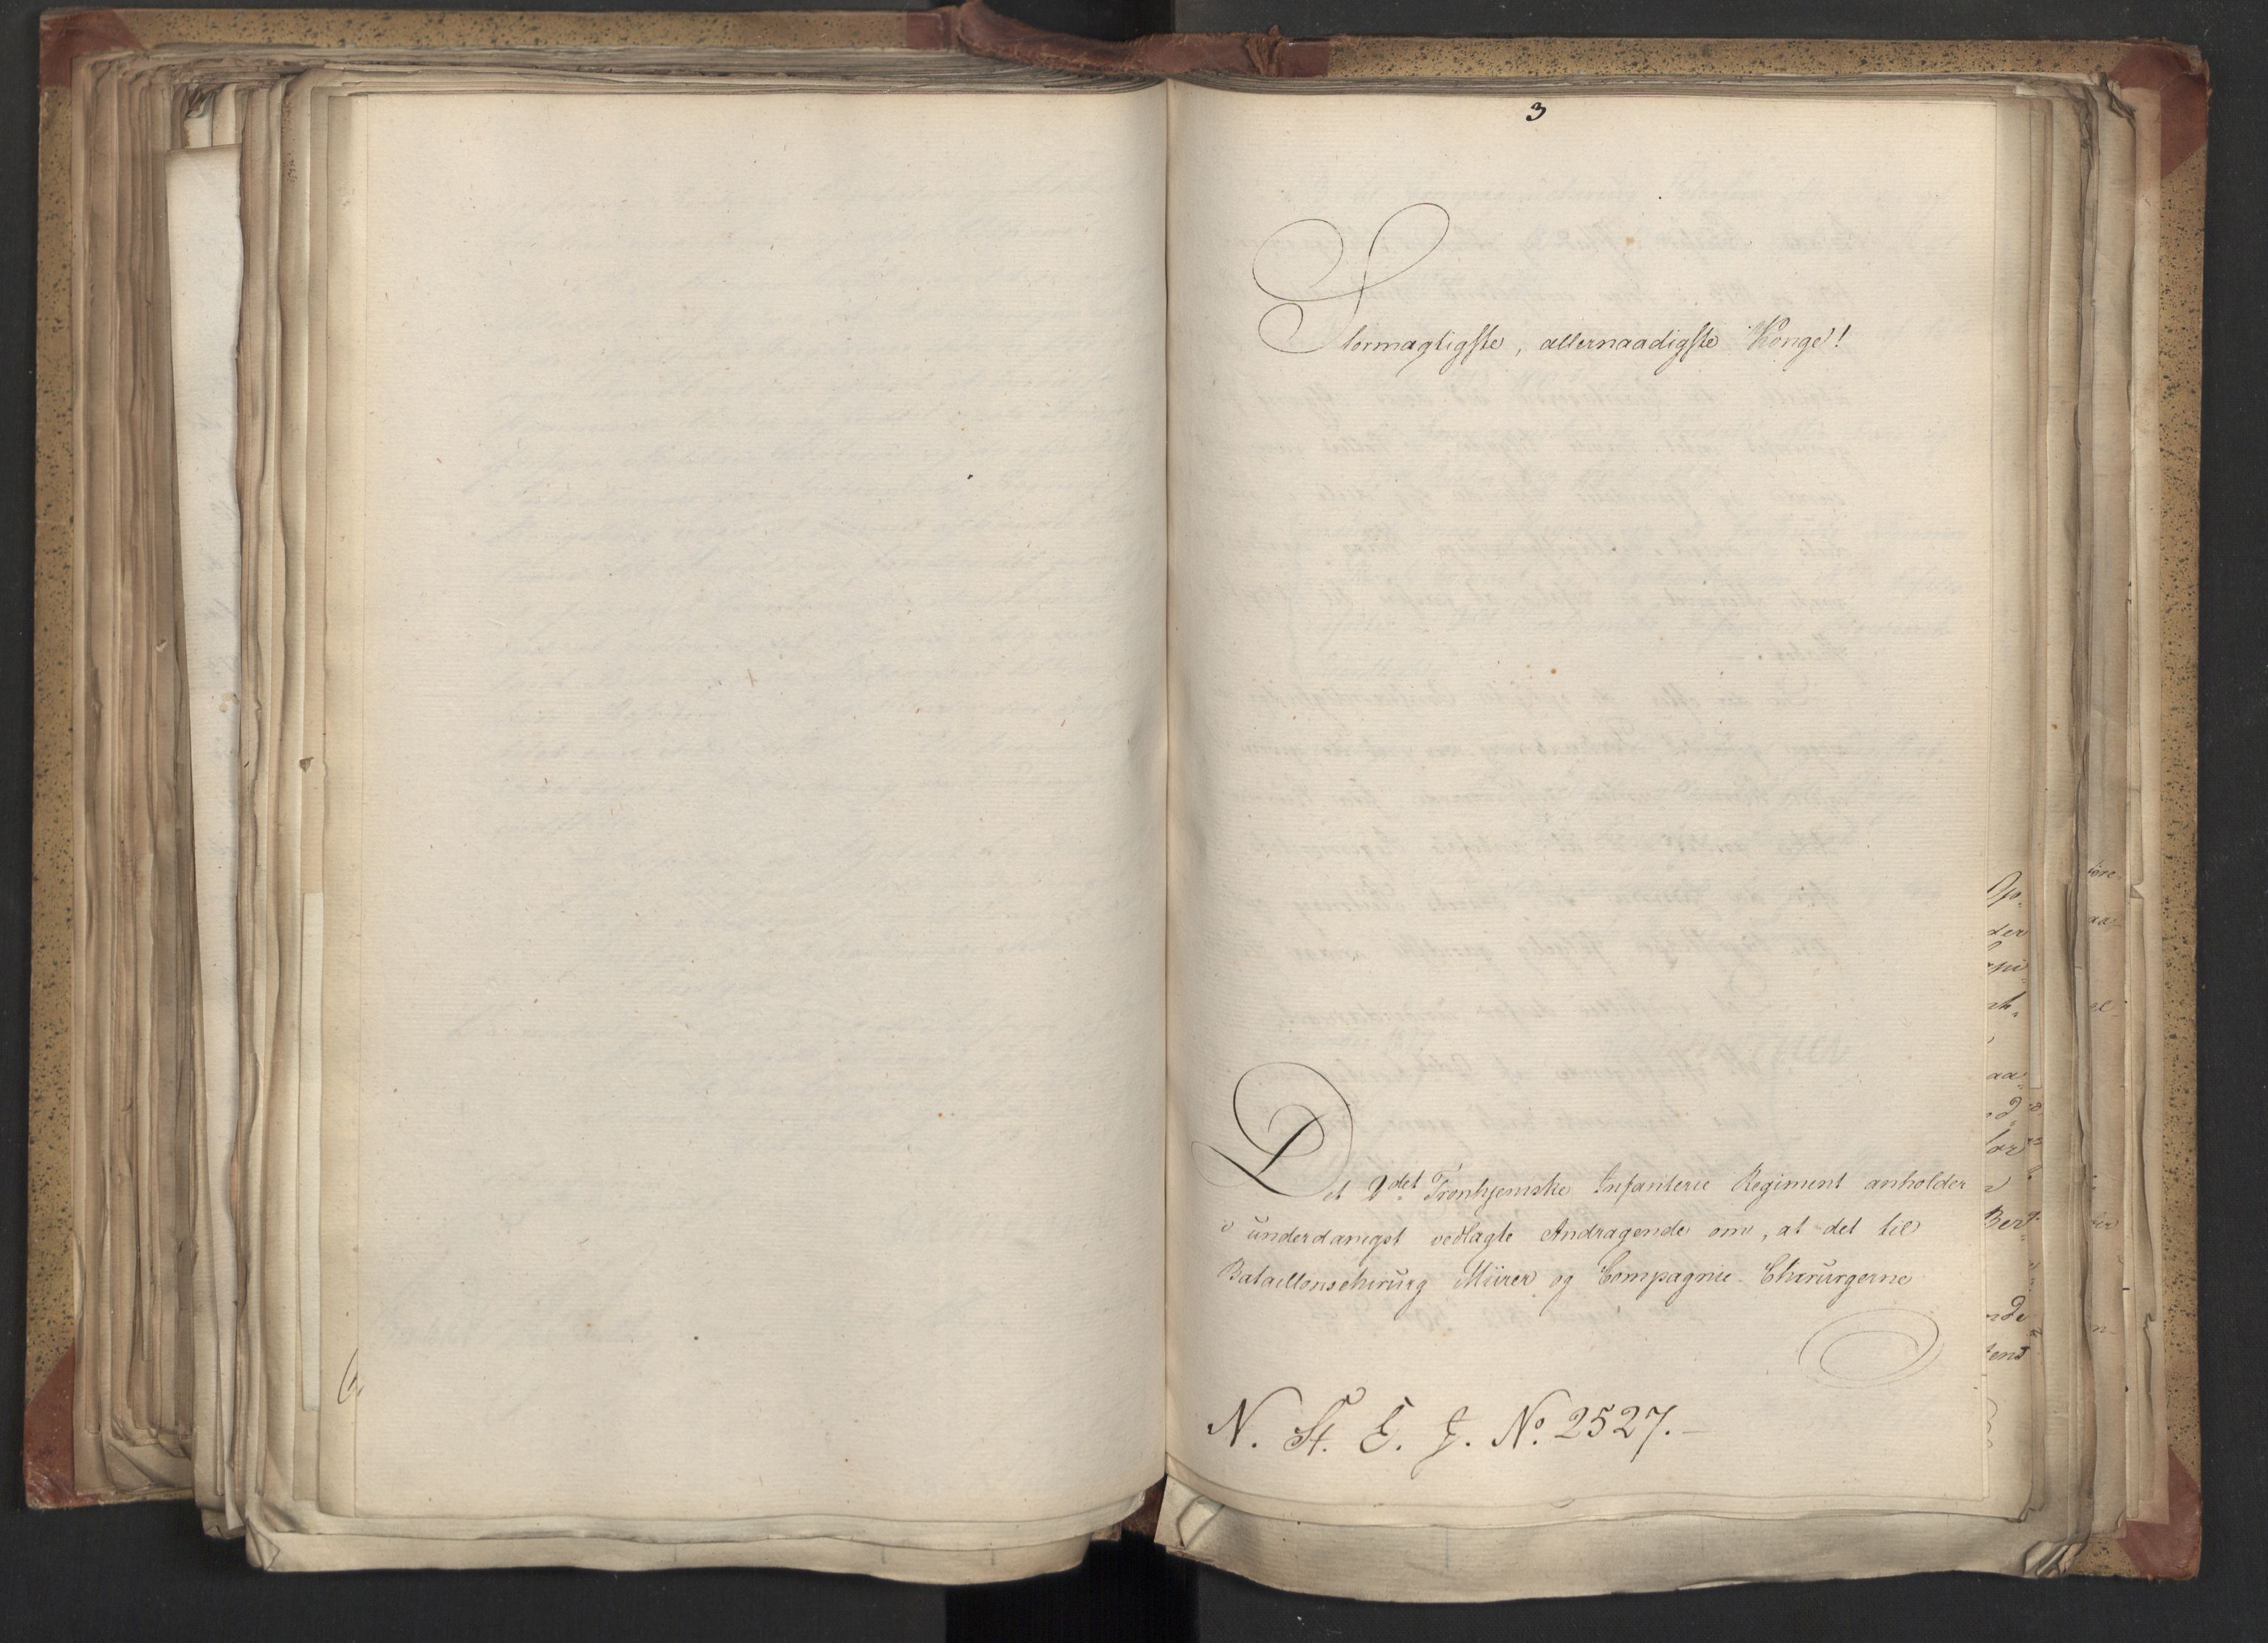 3
Stormagtigste, allernaadigste Konge!
Det 2det Tronhjemske Infanterie Regiment anholder
i underdanigst vedlagte Andragende om, at det til
Bataillonschirurg Mürer og Compagnie-Chirurgerne
N. St. E. J. No. 2527.-